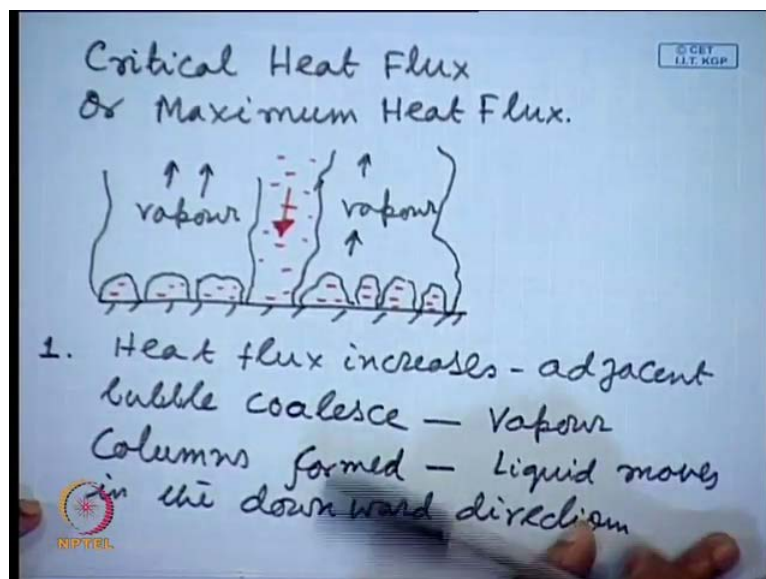 Critical Heat Flux
© CET
I.I.T. KGP
Or Maximum Heat Flux.
vapour
vapour
1. Heat flux increases - adjacent
bubble coalesce — Vapour
Columns formed — Liquid moves
in the downward direction
NPTEL